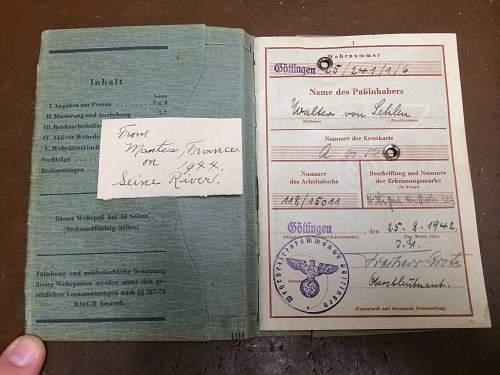 Inhalt
Seiten
I. Angaben zur Person 3 u. 4
II. Musterung und Aushebung 5-7
III. Reichsarbeitsdienst
IV. Aktiver Wehrdienst
V. Wehrdienst im
Nachträge
Bestimmungen
From
Mantes, France
on 1944.
Seine River.
Dieser Wehrpaß hat 56 Seiten
(Sechsundfünfzig Seiten)
Fälschung und mißbräuchliche Benutzung
dieses Wehrpasses werden unter den ge-
setzlichen Voraussetzungen nach §§ 267-70
RStGB bestraft.
1
Wehrnummer
Göttingen 25/241/1/6
Name des Paßinhabers
Walter von
(Rufname) (Familienname)
Nummer der Kennkarte
A
Nummer
des Arbeitsbuchs
Beschriftung und Nummer
der Erkennungsmarke
(im Kriege)
118/15011
Göttingen, den 25.8.1942
Wehrbezirkskommando Göttingen
Freiherr Grote
Oberstleutnant.